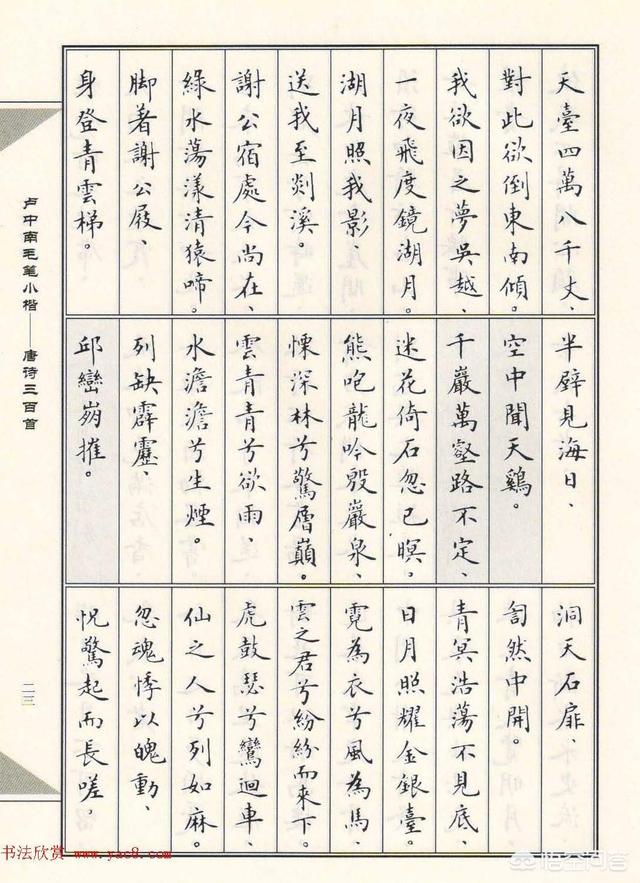 天臺四萬八千丈、
對此欲倒東南傾。
我欲因之夢吳越、
一夜飛度鏡湖月。
湖月照我影、
送我至剡溪。
謝公宿處今尚在、
綠水蕩漾清猿啼。
脚著謝公屐、
身登青雲梯。
半壁見海日、
空中聞天鷄。
千巖萬壑路不定、
迷花倚石忽已暝。
熊咆龍吟殷巖泉、
慄深林兮驚層巔。
雲青青兮欲雨、
水澹澹兮生煙。
列缺霹靂、
邱巒崩摧。
洞天石扉、
訇然中開。
青冥浩蕩不見底、
日月照耀金銀臺。
霓為衣兮風為馬、
雲之君兮紛紛而來下。
虎鼓瑟兮鸞迴車、
仙之人兮列如麻。
忽魂悸以魄動、
怳驚起而長嗟。
卢中南毛笔小楷——唐诗三百首
二三
书法欣赏 www.yac8.com
悟空问答